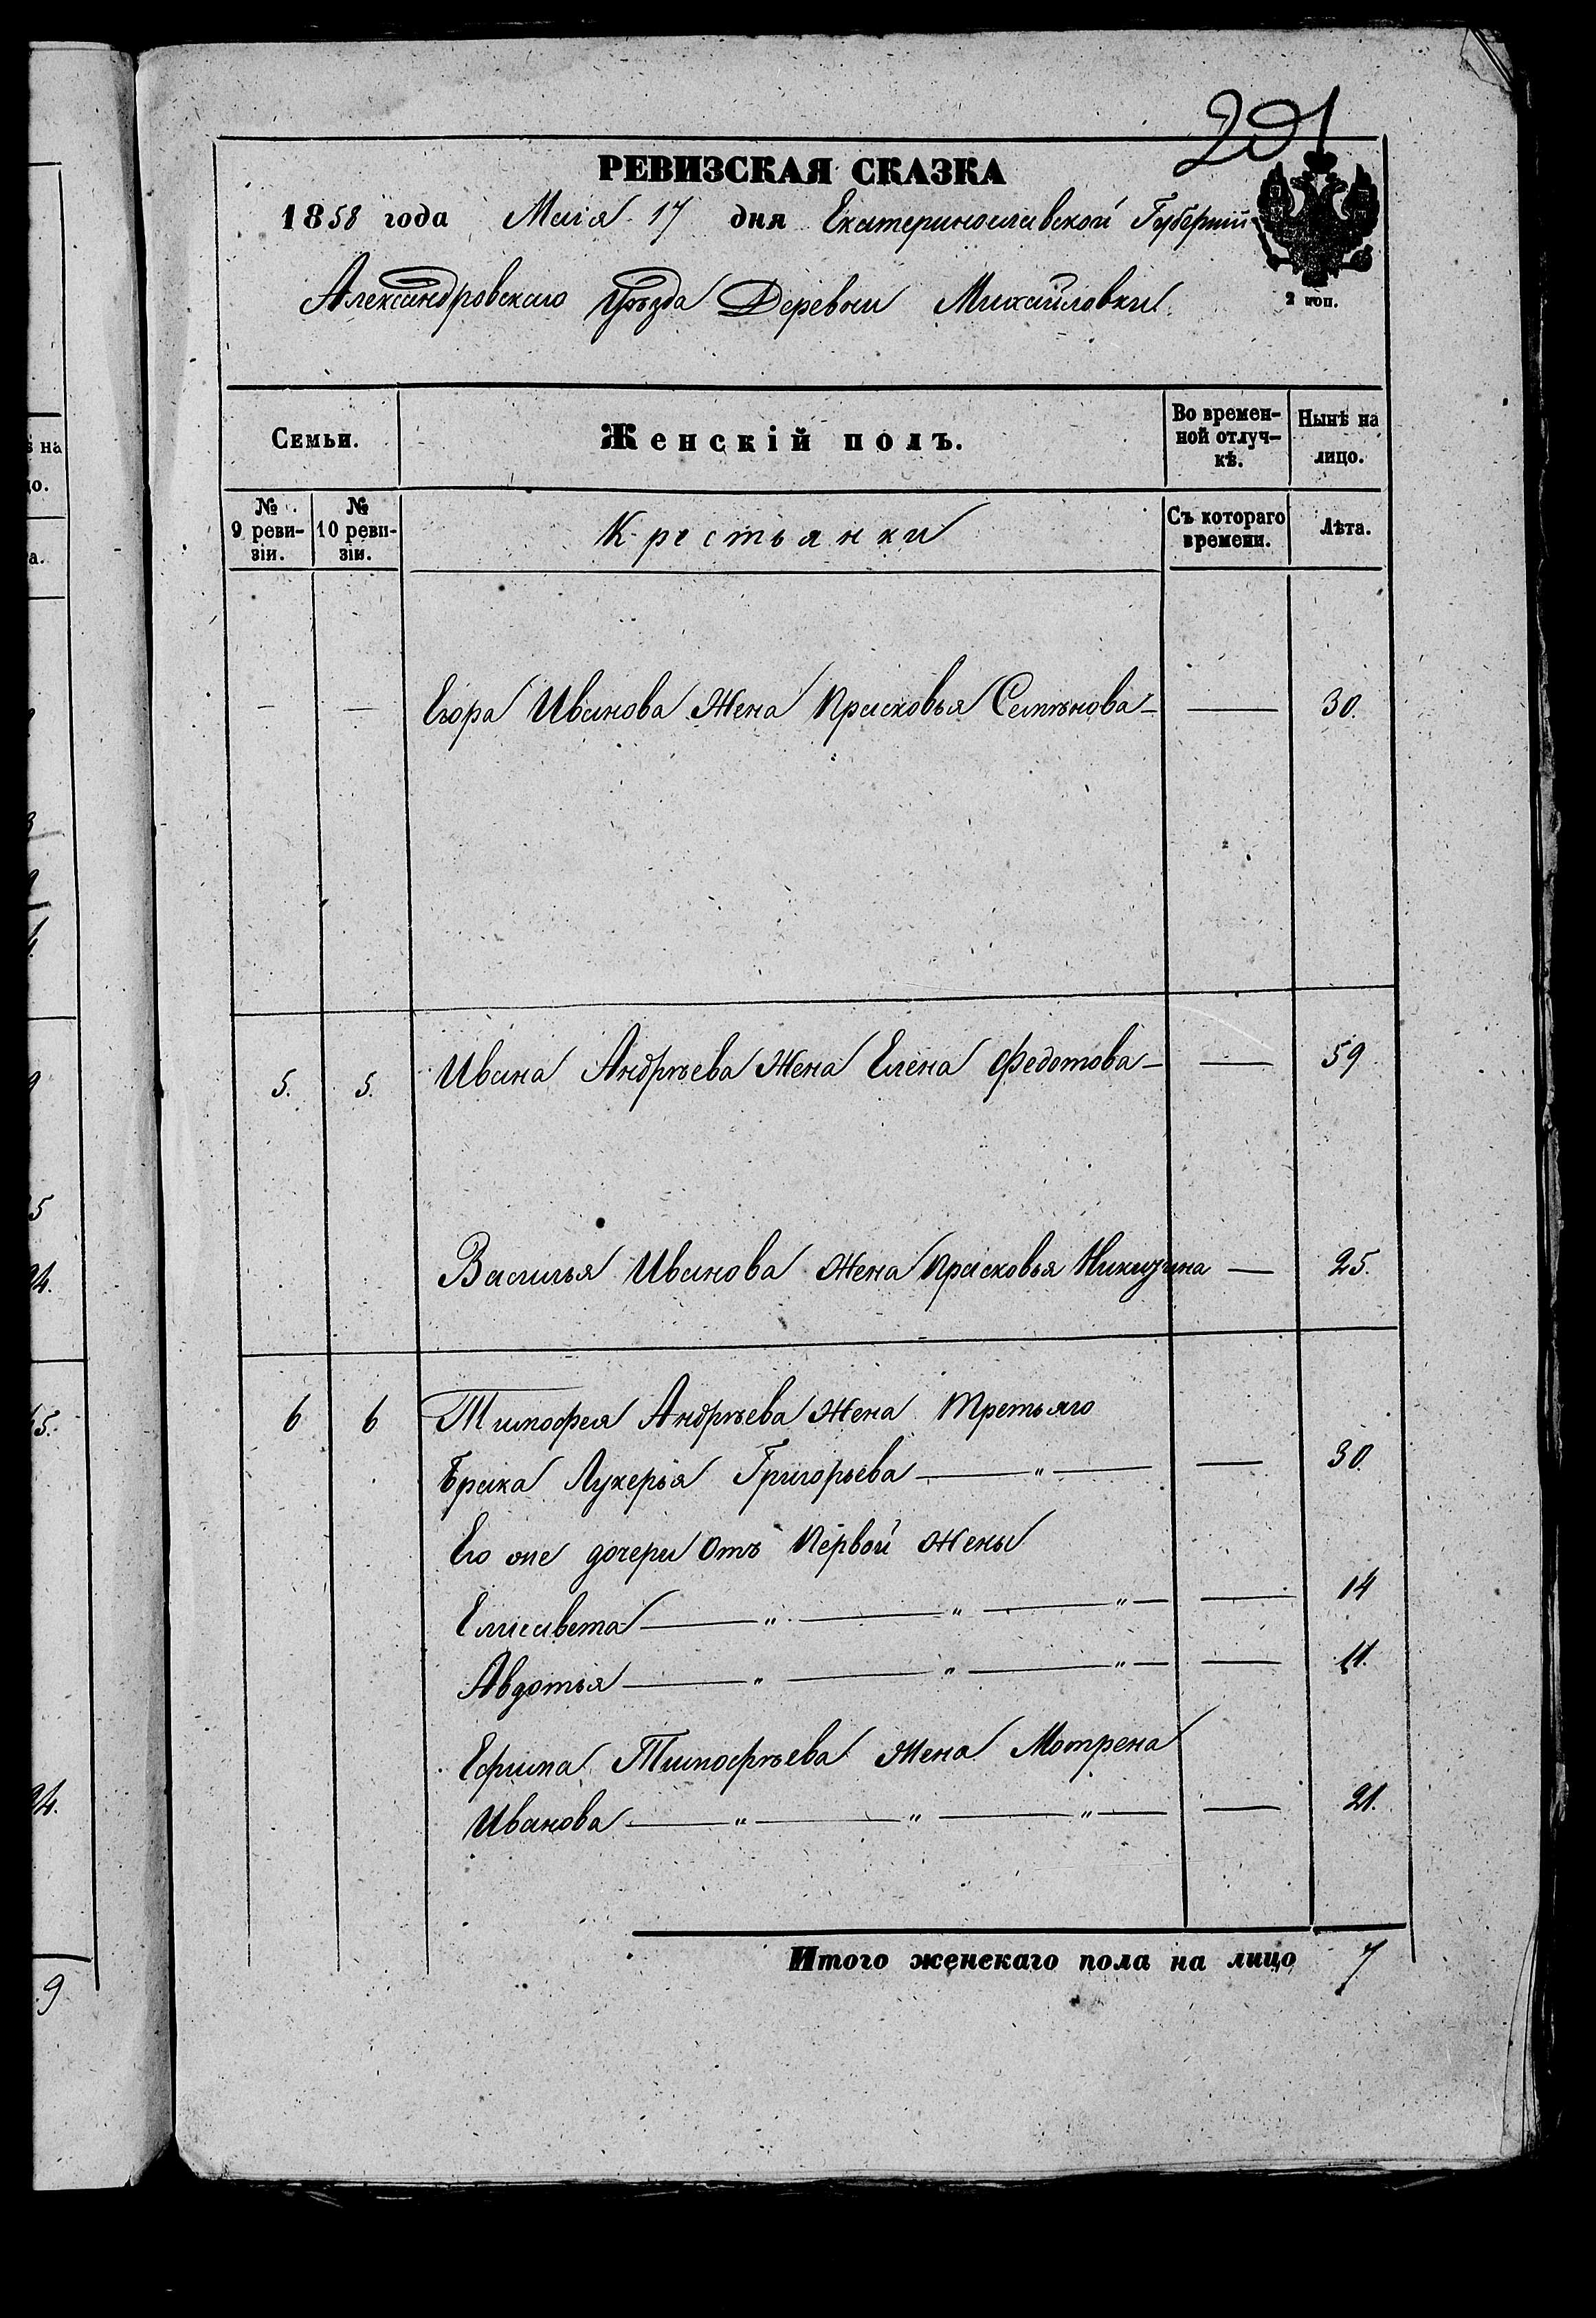 201
РЕВИЗСКАЯ СКАЗКА
1858 года Маія 17 дня Екатеринославской Губерніи
2 коп.
Александровскаго Уѣзда Деревни Михайловки
Семьи.
Женскій полъ.
Во времен-
ной отлуч-
кѣ.
Нынѣ на
лицо.
№
9 реви-
зіи.
№
10 реви-
зіи.
Крестьянки
Съ котораго
времени.
Лѣта.
— — Егора Иванова Жена Прасковья Семѣнова — — 30.
5. 5. Ивана Андрѣева Жена Елена Федотова — — 59
Василья Иванова Жена Прасковья Никитина — 25.
6 6 Тимофея Андрѣева Жена Третьяго
Брака Лукерья Григорьева — „ — — 30.
Его же дочери отъ Первой Жены
Елисавета — „ — „ — „ — — 14
Авдотья — „ — „ — „ — — 11.
Ефима Тимофѣева Жена Мотрена
Иванова — „ — „ — „ — — 21.
Итого женскаго пола на лицо 7
на
о.
а.
5
24.
5.
24.
9